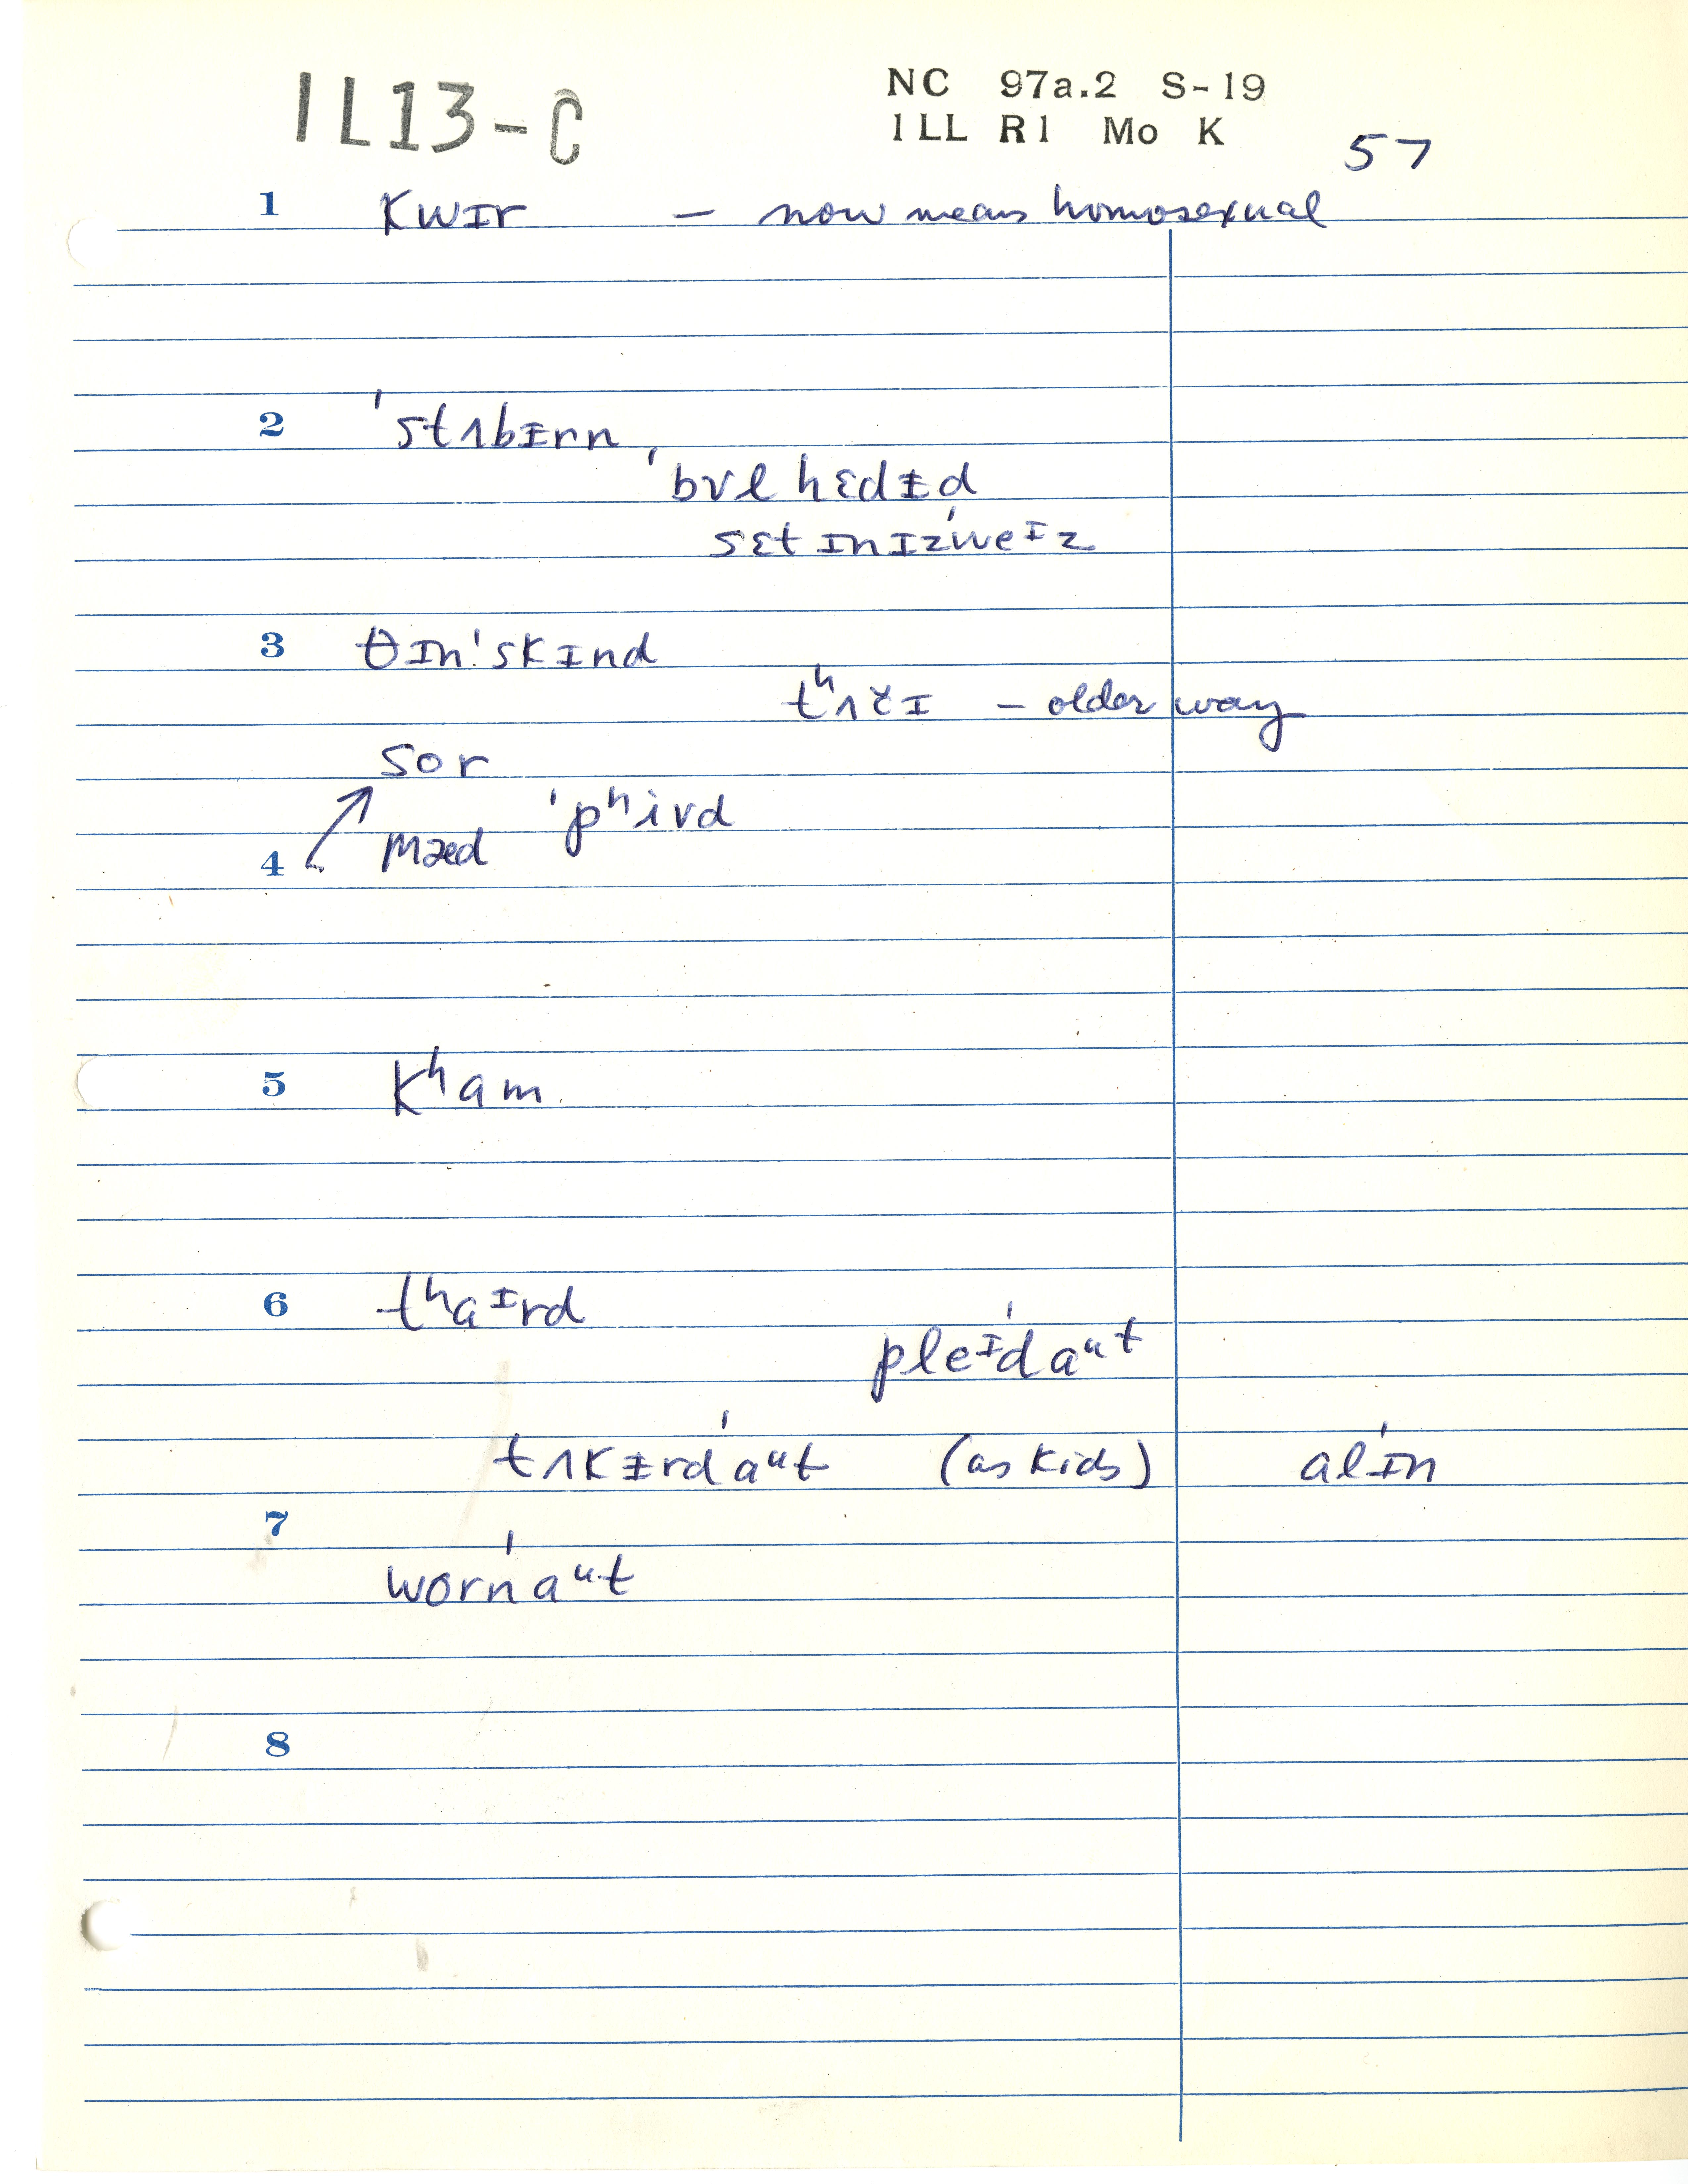 1L13-C
NC 97a.2 S-19
1LL R1 Mo K
57
1 kwɪr — now means homosexual
2 ˈstʌbɨrn
ˈbvlhɛdɨd
sɛtɪnɪzˈweᶦz
3 θɪnˈskɪnd
tʰʌčɪ — older way
sor
4 mæd ˈpʰivd
5 kʰam
6 tʰaᶦrd
pleᶦdˈaᵘt
tʌkɨrdˈaᵘt (as kids) alˈɪn
7
wornˈaᵘt
8